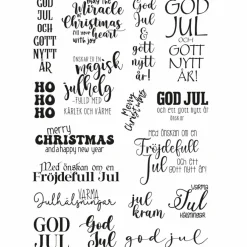 GOD
JUL
OCH
GOTT
NYTT
ÅR!
May the
Miracle
of
Christmas
fill your heart
with joy
God
Jul
&
gott
nytt
år!
GOD
JUL
OCH
GOTT
NYTT
ÅR!
ÖNSKAR ER EN
magisk
julhelg
- FYLLD MED
KÄRLEK OCH VÄRME
HO
HO
HO
Merry
Christmas
GOD JUL
och ett gott nytt år
önskar
merry
CHRISTMAS
and a happy new year
Med önskan om en
Fröjdefull
Jul
Med önskan om en
Fröjdefull Jul
VARMA
Julhälsningar
jul
kram
VARMA
Jul
HÄLSNINGAR
GOD
JUL
God
Jul
god jul